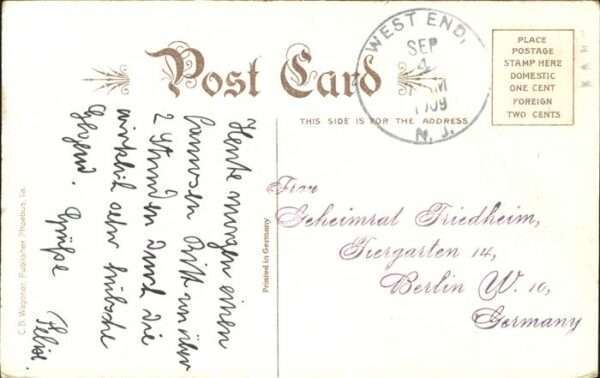 Post Card
THIS SIDE IS FOR THE ADDRESS
WEST END,
SEP
1909
N. J.
PLACE
POSTAGE
STAMP HERE
DOMESTIC
ONE CENT
FOREIGN
TWO CENTS
Heute morgen einen
famosen Ritt von über
2 Stunden durch die
wirklich sehr hübsche
Gegend. Grüße
Felix.
Printed in Germany
Frau
Geheimrat Friedheim,
Tiergarten 14,
Berlin W. 10,
Germany
C. B. Wagoner, Publisher, Phoebus, Va.